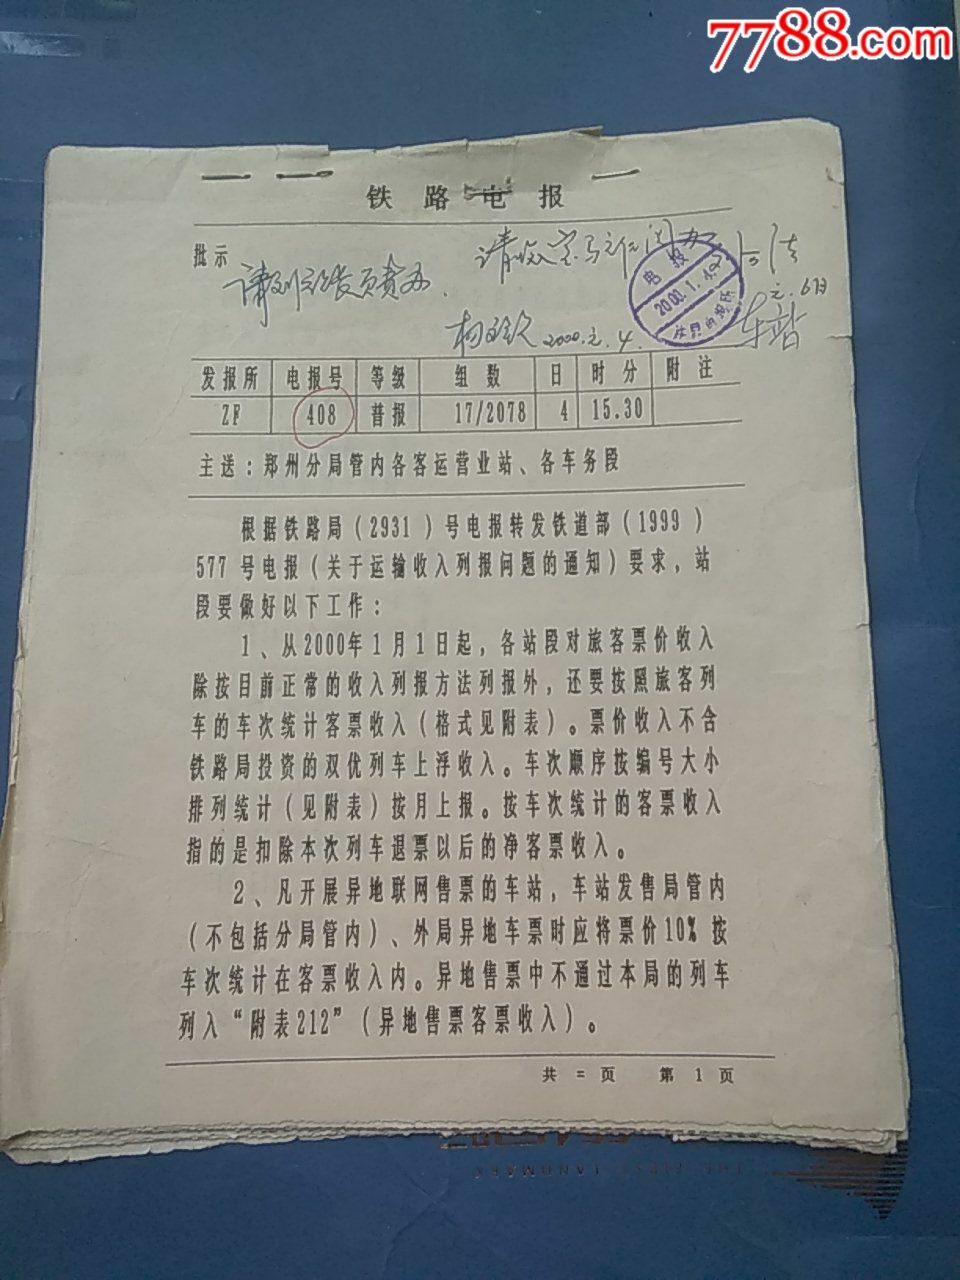 7788.com
铁路电报
批示
2000.1.4
车站
发报所 电报号 等级 组数 日 时分 附注
ZF 408 普报 17/2078 4 15.30
主送：郑州分局管内各客运营业站、各车务段
根据铁路局（2931）号电报转发铁道部（1999）
577号电报（关于运输收入列报问题的通知）要求，站
段要做好以下工作：
1、从2000年1月1日起，各站段对旅客票价收入
除按目前正常的收入列报方法列报外，还要按照旅客列
车的车次统计客票收入（格式见附表）。票价收入不含
铁路局投资的双优列车上浮收入。车次顺序按编号大小
排列统计（见附表）按月上报。按车次统计的客票收入
指的是扣除本次列车退票以后的净客票收入。
2、凡开展异地联网售票的车站，车站发售局管内
（不包括分局管内）、外局异地车票时应将票价10%按
车次统计在客票收入内。异地售票中不通过本局的列车
列入“附表212”（异地售票客票收入）。
共二页 第1页
THE FIRST LANDMARK